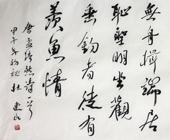 無舟楫端居
恥聖明坐觀
垂釣者徒有
羨魚情
唐孟浩然詩
甲午年初秋杜